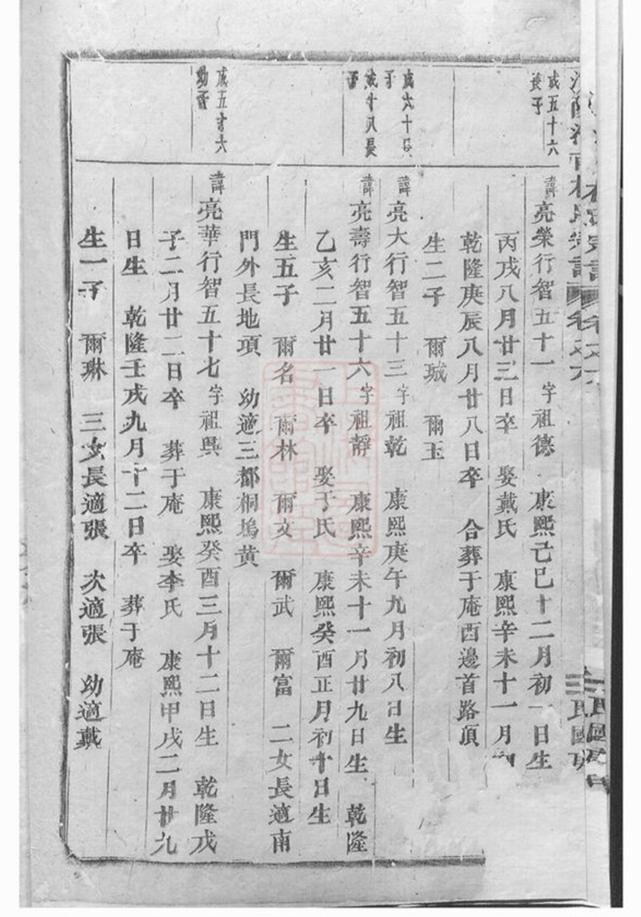 成五十六
長子
諱亮榮行智五十一字祖德　康熙己巳十二月初一日生
丙戌八月廿三日卒　娶戴氏　康熙辛未十一月
乾隆庚辰八月廿八日卒　合葬于庵西邊首路頂
生二子　爾珹　爾玉
成六十
子
諱亮大行智五十三字祖乾　康熙庚午九月初八日生
長
諱亮壽行智五十六字祖靜　康熙辛未十一月廿九日生　乾隆
乙亥二月廿一日卒　娶于氏　康熙癸酉正月初十日生
生五子　爾名　爾林　爾文　爾武　爾富　二女長適南
門外長地項　幼適三都桐塢黃
成五十六
幼子
諱亮華行智五十七字祖興　康熙癸酉三月十二日生　乾隆戊
子二月廿二日卒　葬于庵　娶李氏　康熙甲戌二月廿九
日生　乾隆壬戌九月十二日卒　葬于庵
生一子　爾琳　三女長適張　次適張　幼適戴